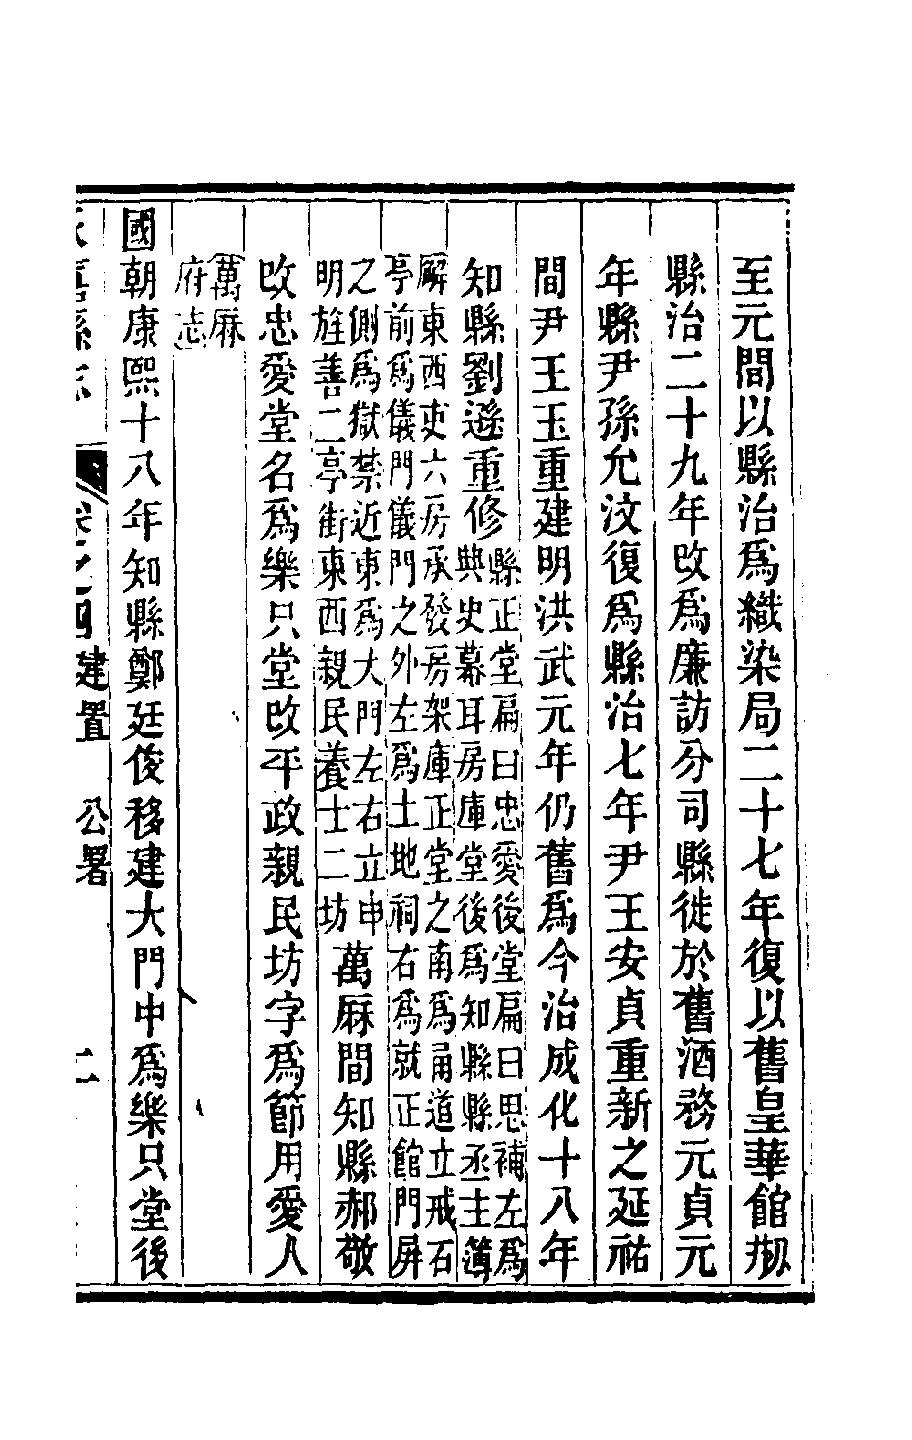 至元間以縣治爲織染局二十七年復以舊皇華館剏
縣治二十九年改爲廉訪分司縣徙於舊酒務元貞元
年縣尹孫允汶復爲縣治七年尹王安貞重新之延祐
間尹王玉重建明洪武元年仍舊爲今治成化十八年
知縣劉遜重修
縣正堂扁曰忠愛後堂扁曰思補左爲
典史幕耳房庫堂後爲知縣縣丞主簿
廨東西吏六房承發房架庫正堂之南爲甬道立戒石
亭前爲儀門儀門之外左爲土地祠右爲就正館門屏
之側爲獄禁近東爲大門左右立申
明旌善二亭街東西親民養士二坊
萬厤間知縣郝敬
改忠愛堂名爲樂只堂改平政親民坊字爲節用愛人
萬厤
府志
國朝康熙十八年知縣鄭廷俊移建大門中爲樂只堂後
永嘉縣志 卷之四 建置 公署 二